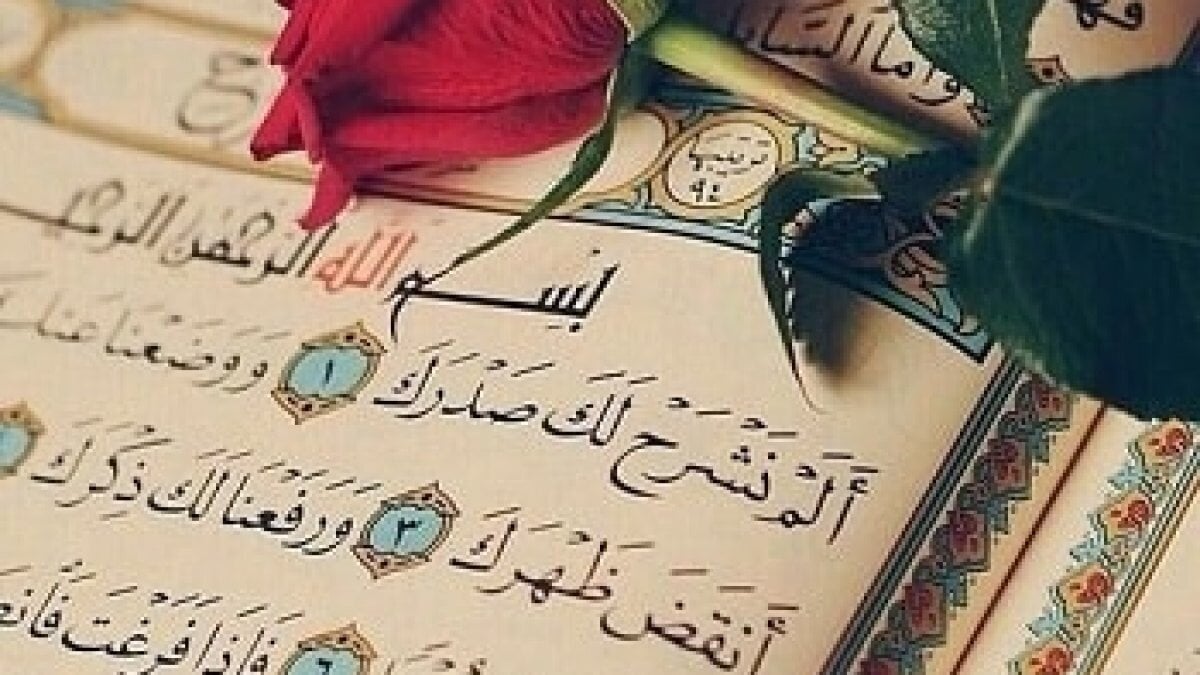 وأما السا
ترتيبها
٩٤
بسم الله الرحمن الرحيم
أَلَمْ نَشْرَحْ لَكَ صَدْرَكَ ١ وَوَضَعْنَا عَنكَ
أَنقَضَ ظَهْرَكَ ٣ وَرَفَعْنَا لَكَ ذِكْرَكَ
٦ فَإِذَا فَرَغْتَ